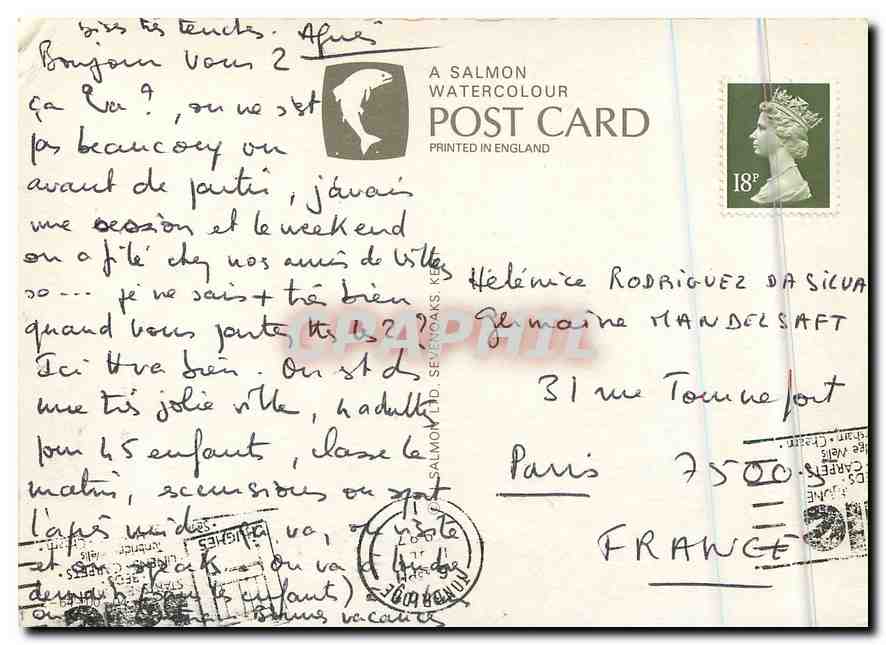 Bises très tendres. Agnès
Bonjour vous 2
ça va ?, on ne s'est
pas beaucoup vu
avant de partir, j'avais
une session et le weekend
on a filé chez nos amis de
so... je ne sais + très bien
quand vous partez ttes les 2 ?
Ici tt va bien. On est ds
une très jolie ville, 4 adultes
pour 45 enfants, classe le
matin, excursions ou sport
l'après midi. ça va, on visite
et on On va à
demain (sans les enfants)
Bonnes vacances
A SALMON
WATERCOLOUR
POST CARD
PRINTED IN ENGLAND
SALMON LTD, SEVENOAKS, KENT
18P
Hélénice RODRIGUEZ DA SILVA
Germaine MANDELSAFT
31 rue Tournefort
Paris 75005
FRANCE
TONBRIDGE
HUGHES
CARPETS
BEDS
CPAPHIL